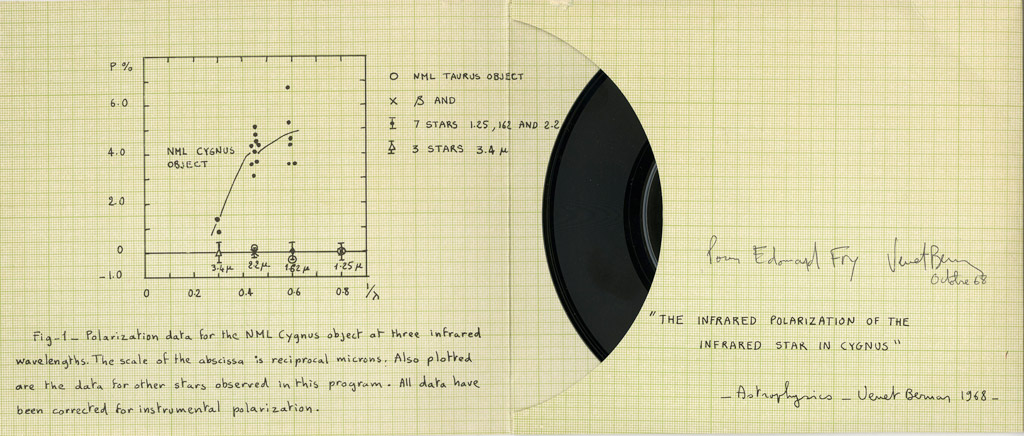 P %
6.0
4.0
2.0
0
-1.0
NML CYGNUS
OBJECT
3.4 μ
2.2 μ
1.62 μ
1.25 μ
0
0.2
0.4
0.6
0.8
1/λ
O NML TAURUS OBJECT
x β AND
7 STARS 1.25, 1.62 AND 2.2
3 STARS 3.4 μ
Fig-1_ Polarization data for the NML Cygnus object at three infrared
wavelengths. The scale of the abscissa is reciprocal microns. Also plotted
are the data for other stars observed in this program. All data have
been corrected for instrumental polarization.
Pour Edouard Fry Venet Bernar
Octobre 68
"THE INFRARED POLARIZATION OF THE
INFRARED STAR IN CYGNUS"
_ Astrophysics _ Venet Bernar 1968 _